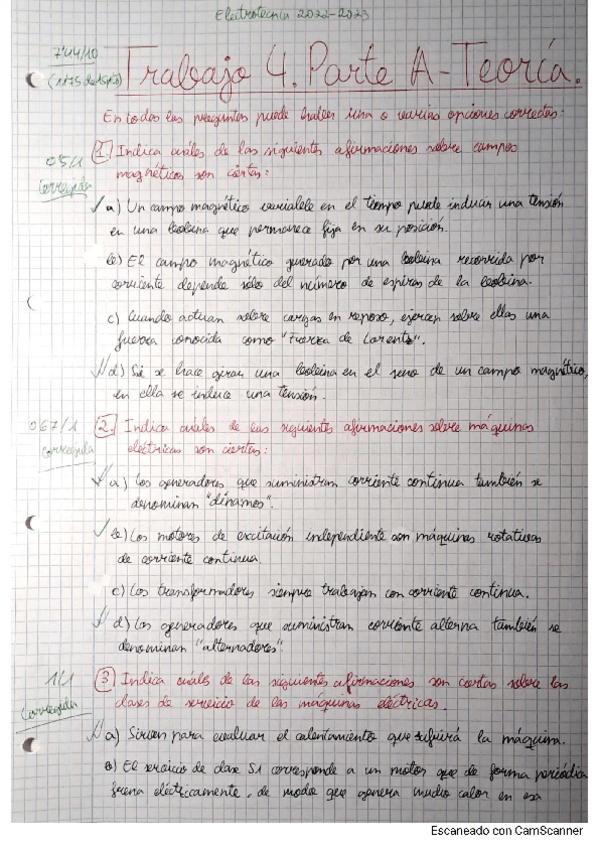 Electrotecnia 2022-2023
7'44/10
Trabajo 4. Parte A - Teoría.
En todas las preguntas puede haber una o varias opciones correctas:
0'5/1
Corregida
1. Indica cuáles de las siguientes afirmaciones sobre campos
magnéticos son ciertas:
a) Un campo magnético variable en el tiempo puede inducir una tensión
en una bobina que permanece fija en su posición.
b) El campo magnético generado por una bobina recorrida por
corriente depende sólo del número de espiras de la bobina.
c) Cuando actúan sobre cargas en reposo, ejercen sobre ellas una
fuerza conocida como "Fuerza de Lorentz".
d) Si se hace girar una bobina en el seno de un campo magnético,
en ella se induce una tensión.
0'67/1
corregida
2. Indica cuáles de las siguientes afirmaciones sobre máquinas
eléctricas son ciertas:
a) Los generadores que suministran corriente continua también se
denominan "dínamos".
b) Los motores de excitación independiente son máquinas rotativas
de corriente continua.
c) Los transformadores siempre trabajan con corriente continua.
d) Los generadores que suministran corriente alterna también se
denominan "alternadores".
1/1
Corregida
3. Indica cuáles de las siguientes afirmaciones son ciertas sobre las
clases de servicio de las máquinas eléctricas.
a) Sirven para evaluar el calentamiento que sufrirá la máquina.
b) El servicio de clase S1 corresponde a un motor que de forma periódica
frena eléctricamente, de modo que genera mucho calor en esa
Escaneado con CamScanner